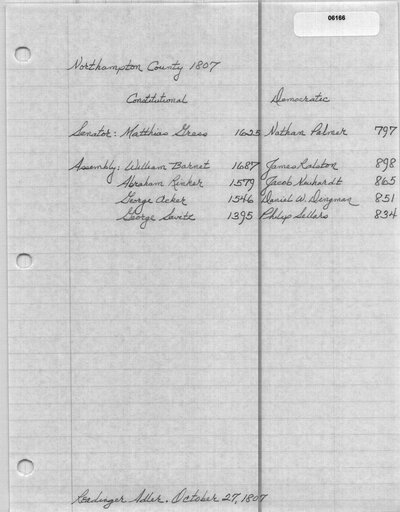 06166
Northampton County 1807
Constitutional Democratic
Senator: Matthias Gress 1625 Nathan Palmer 797
Assembly: William Barnet 1687 James Ralston 898
Abraham Rinker 1579 Jacob Newhardt 865
George Acker 1546 Daniel W. Dingman 851
George Savitz 1395 Philip Sellers 834
Readinger Adler. October 27, 1807